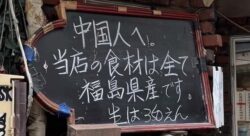 中国人へ。
当店の食材は全て
福島県産です。
生は360えん